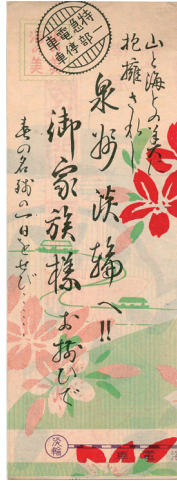 特急電車
全部停車
山と海との美に
抱擁されし
泉州淡輪へ!!
御家族様お揃ひで
春の名残の一日をぜひ……
淡輪